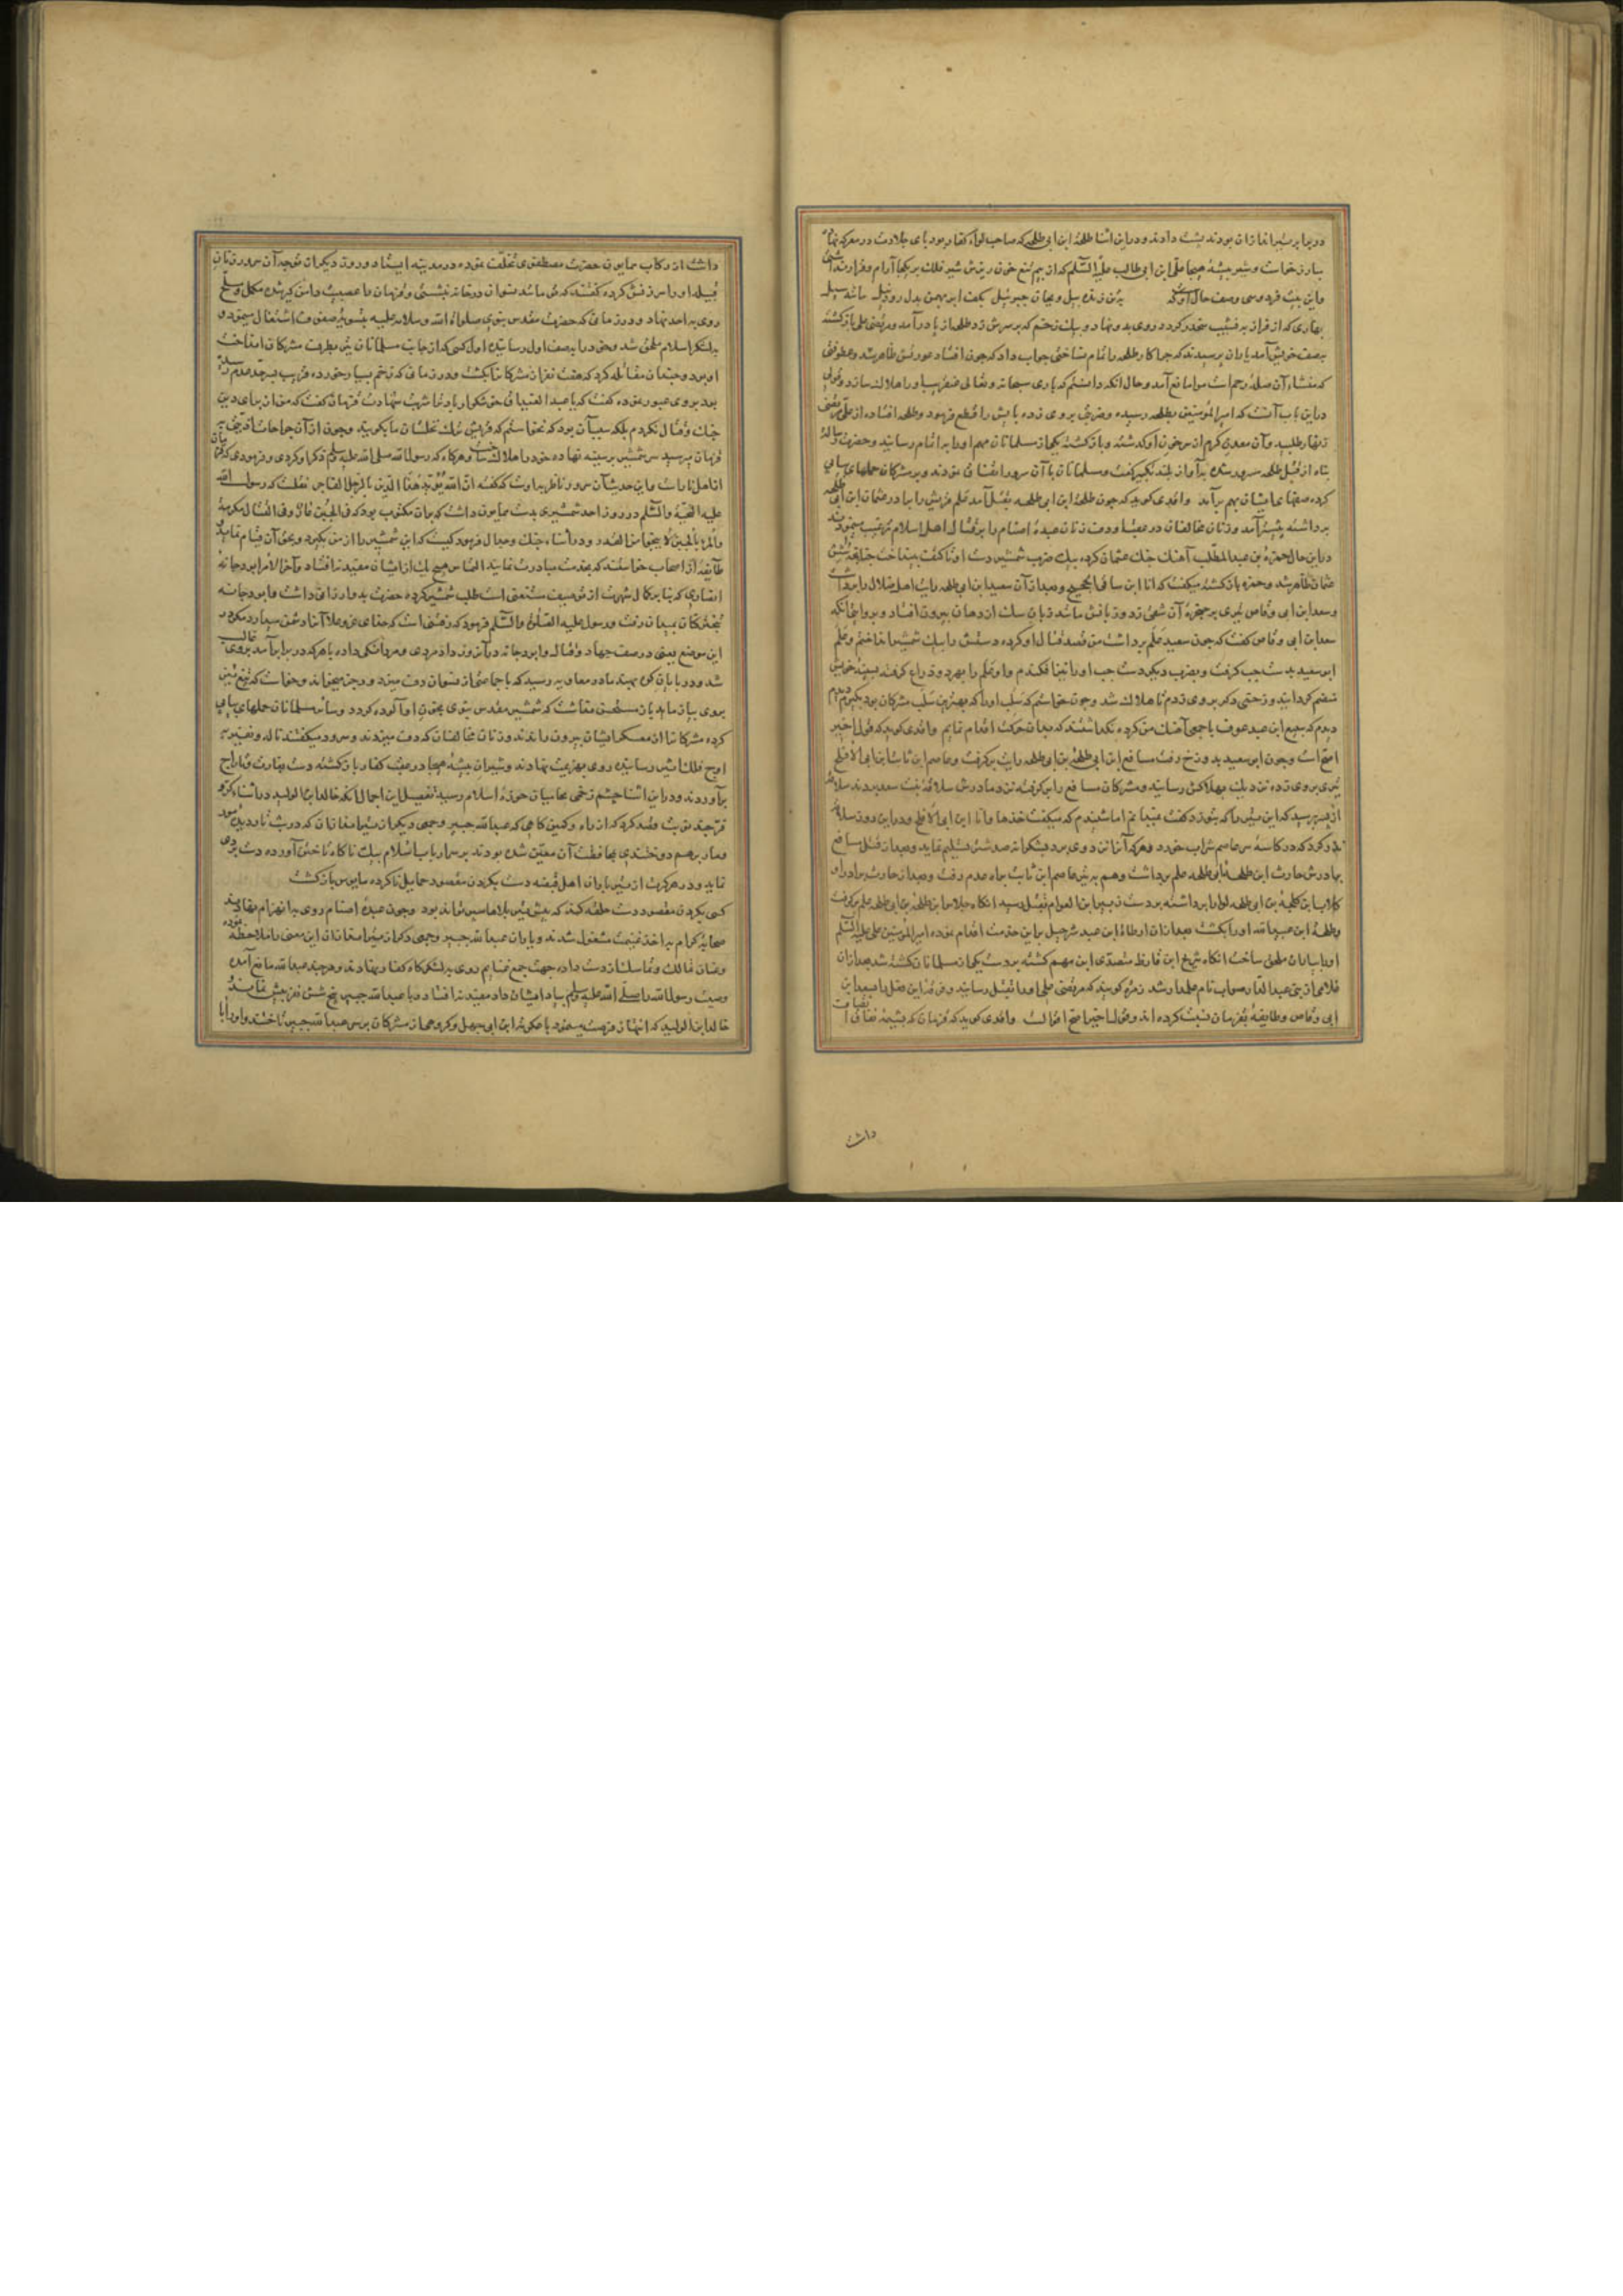 در برابر تیراندازان بودند پشت دادند و در این اثنا طلحه ابن ابی طلحه که صاحب لواء کفار بود پای جلادت در معرکه
مبارز خواست و شیر بیشه هیجا علی ابن ابی طالب علیه السّلم که از بیم تیغ خون ریزش شیر فلک بر یکجا آرام و قرار
و این بیت فردوسی وصف حال به تن ژنده پیل و بجان جبرئیل بکف ابر بهمن بدل رود نیل مانند سیل
بهاری که از فراز به نشیب منحدر کردد روی بدو نهاد و بیک زخم که بر سرش زد طلحه از پا درآمد و مرتضی علی بازکشته
بصف خویش آمد یاران پرسیدند که چرا کار طلحه را تمام نساختی جواب داد که چون افتاد عورتش ظاهر شد و عطوفتی
که منشاء آن صله رحم است مرا مانع آمد و حال آنکه دانستم که باری سبحانه و تعالی عنقریب او را هلاک سازد و قولی
در این باب آنست که امیر المؤمنین بطلحه رسیده و ضربتی بر وی زده پایش را قطع فرمود و طلحه افتاده از علی مرتضی
زنهار طلبید و آن معدن کرم از سر خون او کذشته و بازکشته یکی از مسلمانان مهم او را به اتمام رسانید و حضرت رسالت
پناه از قتل طلحه مسرور شده به آواز بلند تکبیر کفت و مسلمانان با آن سرور موافقت نمودند و بر مشرکان حملهای پیاپی
کرده صفهای ایشان بهم برآمد واقدی کوید که چون طلحه ابن ابی طلحه بقتل آمد علم قریش را برادر عثمان ابن ابی طلحه
برداشته پیش آمد و زنان مخالفان در عقب او دف زنان عبده اصنام را بر قتال اهل اسلام ترغیب مینمودند
در این حال حمزه بن عبد المطلب آهنک جنک عثمان کرده بیک ضرب شمشیر دست او را با کتف بینداخت چنانچه شش
عثمان ظاهر شد و حمزه بازکشته میکفت که انا ابن ساقی الحجیج و بعد از آن سعید ابن ابی طلحه رایت اهل ضلال را برداشت
و سعد ابن ابی وقاص تیری بر حنجره آن شقی زد و زبانش مانند زبان سک از دهان بیرون افتاد و بروایتی آنکه
سعد ابن ابی وقاص کفت که چون سعید علم برداشت من قصد قتال او کرده دستش را بیک شمشیر انداختم و علم
ابو سعید بدست چپ کرفت و بضرب دیکر دست چپ او را بینداختم و او علم را بهر دو ذراع کرفته بسینه خویش
منضم کردانید و زخمی دکر بر وی زدم تا هلاک شد و چون خواستم که سلب او را که بهترین سلب مشرکان بود بکیرم
دیدم که سبیع ابن عبد عوف با جمعی آهنک من کرده نکذاشتند که بدان حرکت اقدام نمایم واقدی کوید که قول اخیر
اصح است و چون ابو سعید بدوزخ رفت مسافع ابن طلحة بن ابی طلحه رایت برکرفت و عاصم ابن ثابت ابن ابی الافلح
تیری بر وی زده نزدیک بهلاکش رسانید و مشرکان مسافع را برکرفته نزد مادرش سلافه بنت سعد بردند سلافه
از پسر پرسید که این تیر را که بتو زد کفت نمیدانم اما شنیدم که میکفت خذها وانا ابن ابی الافلح و در این روز سلافه
نذر کرد که در کاسه سر عاصم شراب خورد و هر که آنرا نزد وی برد بشکرانه صد شتر تسلیم نماید و بعد از قتل مسافع
برادرش حارث ابن طلحة ابن ابی طلحه علم برداشت و هم به تیر عاصم ابن ثابت براه عدم رفت و بعد از حارث برادر او
کلاب ابن طلحة بن ابی طلحه لوا را برداشته بر دست زبیر ابن العوام بقتل رسید آنکاه جلاس ابن طلحة بن ابی طلحه علم برکرفت
و طلحة ابن عبید الله او را بکشت بعد از آن ارطاة ابن عبد شرحبیل بر این خدمت اقدام نموده امیر المؤمنین علی علیه السّلم
او را بیاران ملحق ساخت آنکاه شریح ابن قارظ متصدی این مهم کشته بر دست یکی از مسلمانان کشته شد بعد از آن
غلامی از بنی عبد الدار صواب نام علمدار شد زمره کویند که مرتضی علی او را بقتل رسانید و فرقه این فعل را بسعد ابن
ابی وقاص و طایفه بقزمان نسبت کرده اند و قول اخیر اصح اقوالست واقدی کوید که قزمان که بشیمه نفاق اتصاف
داشت
داشت از رکاب همایون حضرت مصطفوی تخلف نموده در مدینه ایستاد و روز دیکر از توجه آن سرور زنان
قبیله او را سرزنش کرده کفتند که تو مانند نسوان در خانه نشستی و قزمان را عصبیت دامن کیر شده مکمل و مسلح
روی به احد نهاد و در زمانی که حضرت مقدس نبوی صلوات الله و سلامه علیه بتسویه صفوف اشتغال مینمود
به لشکر اسلام ملحق شد و خود را بصف اول رسانیده اول کسی که از جانب مسلمانان تیر بطرف مشرکان انداخت
او بود و چندان مقاتله کرد که هفت نفر از مشرکان را بکشت و در زمانی که زخم بسیار خورده قریب بسرحد عدم رسیده
بود بر وی عبور نموده کفت که یا عبد الغیداق خوشکوار باد ترا شربت شهادت قزمان کفت که من از برای دین
جنک و قتال نکردم بلکه سبب آن بود که نخواستم که قریش نخلستان ما بکوبند و چون از آن جراحات اذیت
قزمان برسید سر شمشیر بر سینه نهاده خود را هلاک ساخت و هرکاه که رسول الله صلی الله علیه و سلم ذکر او کردی فرمودی که
از اهل نار است و این حدیث آن سرور ناظر بدوست که کفته ان الله یؤید هذا الدین بالرجل الفاجر نقلست که رسول الله
علیه التحیة والسّلم در روز احد شمشیری بدست همایون داشت که بر آن مکتوب بود که فی الجبن عار وفی الاقبال مکرمة
والمرء بالجبن لا ینجو من القدر و در اثناء جنک و جدال فرمود کیست که این شمشیر را از من بکیرد و بحق آن قیام نماید
طایفه از اصحاب خواستند که بخدمت مبادرت نمایند التماس هیچ یک از ایشان مفید نه افتاد و آخر الامر ابو دجانه
انصاری که بنا بر کمال شهرت از توصیف مستغنی است طلب شمشیر کرده حضرت بدو ارزانی داشت و ابو دجانه
تبختر کنان بمیدان رفت و رسول علیه الصلوة والسّلم فرمود که رفتنی است که خدای عز و علا آنرا دشمن میدارد مکر در
این موضع یعنی در صف جهاد و قتال و ابو دجانه در آن روز داد مردی و مردانکی داده با هر که در برابر آمد بر وی غالب
شد و در پایان کوه بهند مادر معاویه رسید که با جماعتی از نسوان دف میزد و رجز میخواند و خواست که تیغ تیز
بر وی براند کرد و سایر مسلمانان حملهای پیاپی
کرده مشرکانرا از معسکر ایشان بیرون راندند و زنان مخالفان که دف میزدند و سرود میکفتند ناله و نفیر به
اوج فلک اثیر رسانیده روی بهزیمت نهادند و شیران بیشه هیجا در عقب کفار بازکشته دست بغارت و تاراج
برآوردند و در این اثنا چشم زخمی بحامیان حوزه اسلام رسید تفصیل این اجمال آنکه خالد ابن الولید در اثناء کر و
فر چند نوبت قصد کرد که از راه کمین کاهی که عبد الله جبیر و جمعی دیکر از تیراندازان
و مدار بر هم دوختندی بمحافظت آن معین شده بودند بر سر ارباب اسلام بیک ناکاه تاختن آورده دست بردی
نماید و در هر کرت از تیر یاران اهل قبضه دست بکردن مقصود حمایل ناکرده مایوس بازکشت
کسی بکردن مقصود دست حلقه کند که پیش تیر بلاها سپر تواند بود و چون عبده اصنام روی به انهزام نهادند
صحابه کرام به اخذ غنیمت مشغول شدند و یاران عبد الله جبیر و جمعی دکر از تیراندازان این معنی را ملاحظه نموده
و عنان تمالک و تماسک از دست داده جهت جمع غنایم روی به لشکرکاه کفار نهادند و هر چند عبد الله مانع آمده
وصیت رسول الله را صلّی الله علیه وسلم بیاد ایشان داد مفید نه افتاد و با عبد الله جبیر پنج شش نفر بیش نماندند
خالد ابن الولید که انتهاز فرصت مینمود با عکرمه ابن ابی جهل و کروهی از مشرکان بر سر عبد الله جبیر تاختند و او را با